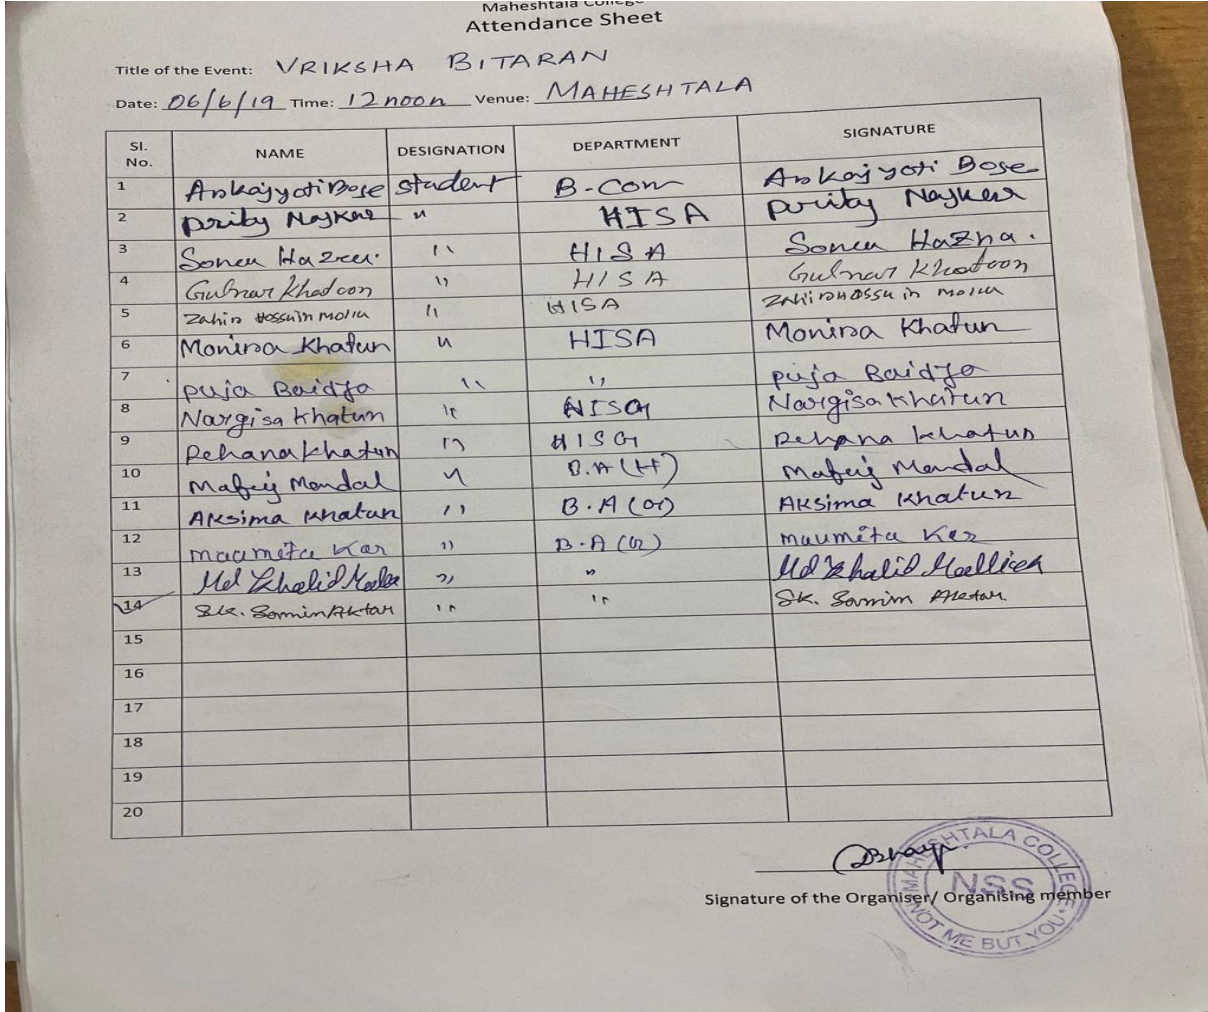 Maheshtala College
Attendance Sheet
Title of the Event: VRIKSHA BITARAN
Date: 06/6/19 Time: 12 noon Venue: MAHESHTALA
Sl. No. NAME DESIGNATION DEPARTMENT SIGNATURE
1 Arkajyoti Bose student B-Com Arkajyoti Bose
2 Purity Naskar " HISA Purity Naskar
3 Soneu Hazra. " HISA Soneu Hazra.
4 Gulnar Khatoon " HISA Gulnar Khatoon
5 Zahir Hossain Molla " HISA Zahir Hossain Molla
6 Monirsa Khatun " HISA Monirsa Khatun
7 puja Baidya " " puja Baidya
8 Nargisa Khatun " HISG Nargisa Khatun
9 Rehana Khatun " HISG Rehana Khatun
10 Mafuj Mondal " B.A (H) Mafuj Mondal
11 Aksima Khatun " B.A (G) Aksima Khatun
12 Maumita Kar " B.A (G) Maumita Kar
13 Md Khalid " " Md Khalid Mollick
14 Sk. Samim Aktar " " Sk. Samim Aktar
15
16
17
18
19
20
Signature of the Organiser/ Organising member
MAHESHTALA COLLEGE
NSS
NOT ME BUT YOU